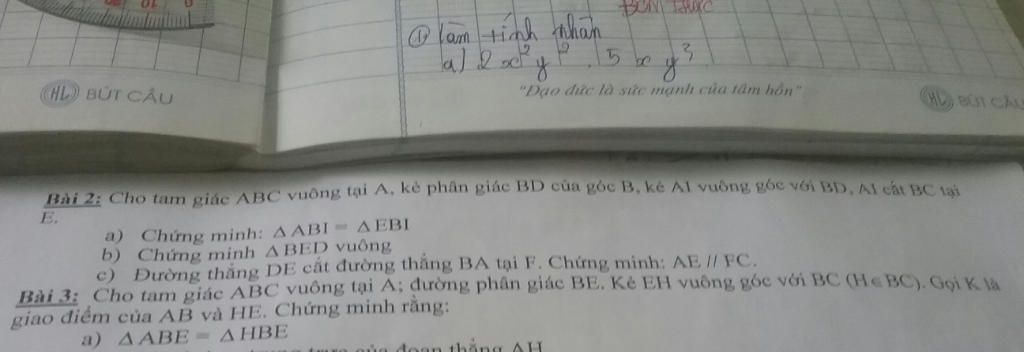 BÀI TRƯỚC
① làm tính nhân
a) 2x²y² . 5xy³
HL BÚT CÂU
"Đạo đức là sức mạnh của tâm hồn"
HL BÚT CÂU
Bài 2: Cho tam giác ABC vuông tại A, kẻ phân giác BD của góc B, kẻ AI vuông góc với BD, AI cắt BC tại
E.
a) Chứng minh: Δ ABI = Δ EBI
b) Chứng minh Δ BED vuông
c) Đường thẳng DE cắt đường thẳng BA tại F. Chứng minh: AE // FC.
Bài 3: Cho tam giác ABC vuông tại A; đường phân giác BE. Kẻ EH vuông góc với BC (H∈BC). Gọi K là
giao điểm của AB và HE. Chứng minh rằng:
a) Δ ABE = Δ HBE
của đoạn thẳng AH